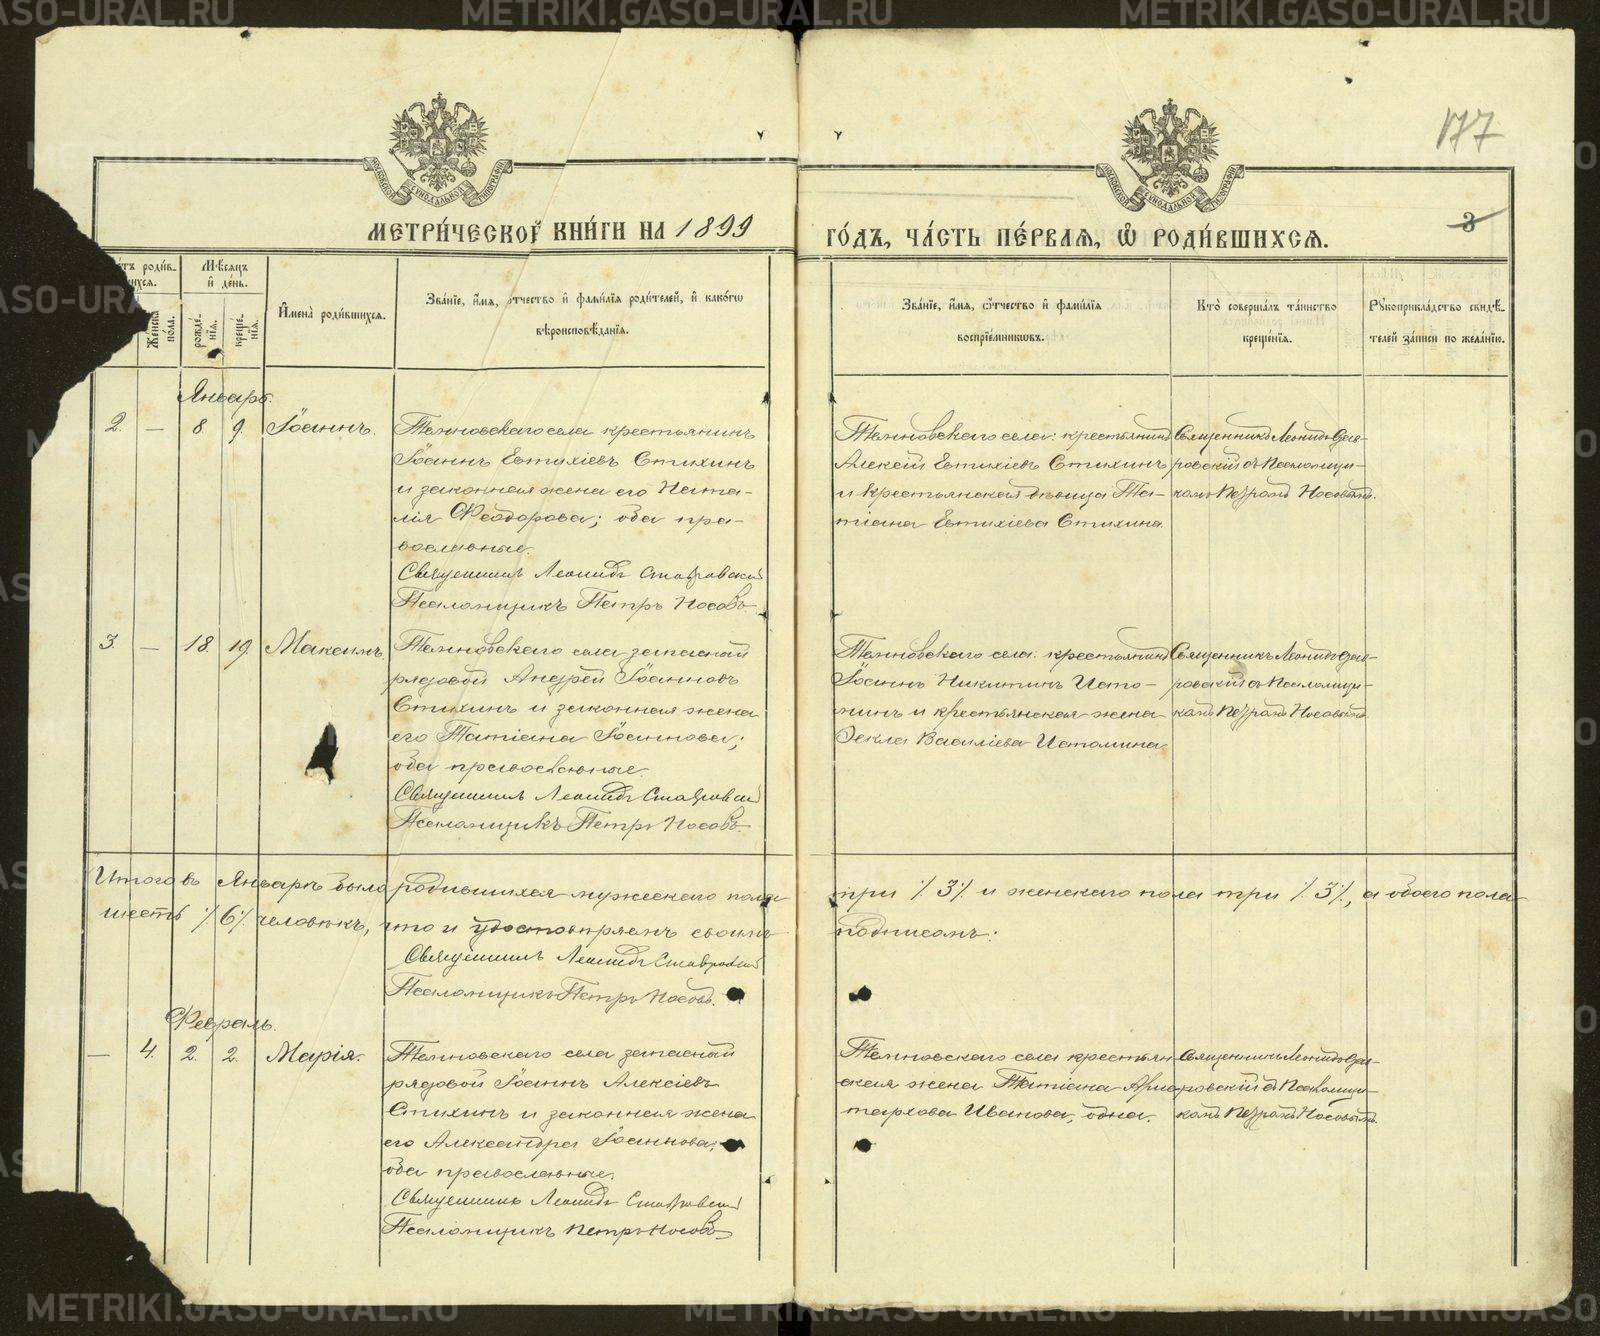 METRIKI.GASO-URAL.RU
177
МОСКОВСКОЙ СѴНОДАЛЬНОЙ ТИПОГРАФІИ
МОСКОВСКОЙ СѴНОДАЛЬНОЙ ТИПОГРАФІИ
3
МЕТРИ́ЧЕСКОЙ КНИ́ГИ НА 1899
ГО́ДЪ, ЧА́СТЬ ПЕ́РВАЯ, Ѽ РОДИ́ВШИХСЯ.
роди́в-
шихся.
Же́нска
по́ла.
Мѣ́сяцъ
и҆ де́нь.
рожде́-
нїя.
креще́-
нїя.
И҆мена̀ роди́вшихся.
Зва́нїе, и҆́мя, ѻ҆́тчество и҆ фами́лїя роди́телей, и҆ како́гѡ
вѣроисповѣ́данїя.
Зва́нїе, и҆́мя, ѻ҆́тчество и҆ фами́лїя
воспрїе́мникѡвъ.
Кто̀ соверша́лъ та́инство
креще́нїя.
Рꙋкоприкла́дство свидѣ́-
телей за́писи по жела́нїю.
Январь.
2. — 8. 9. Іоаннъ.
Темновскаго села крестьянинъ
Іоаннъ Евтихіевъ Стихинъ
и законная жена его Ната-
лія Ѳеодорова; оба пра-
вославные.
Священникъ Леонидъ Ставровскій
Псаломщикъ Петръ Носовъ.
Темновскаго села: крестьянинъ
Алексій Евтихіевъ Стихинъ
и крестьянская дѣвица Та-
тіана Евтихіева Стихина
Священникъ Леонидъ Став-
ровскій съ Псаломщи-
комъ Петромъ Носовымъ.
3. — 18. 19. Максимъ.
Темновскаго села запасный
рядовой Андрей Іоанновъ
Стихинъ и законная жена
его Татіана Іоаннова;
оба православные.
Священникъ Леонидъ Ставровскій
Псаломщикъ Петръ Носовъ.
Темновскаго села: крестьянинъ
Іоаннъ Никитинъ Исто-
минъ и крестьянская жена
Ѳекла Василіева Истомина
Священникъ Леонидъ Став-
ровскій съ Псаломщи-
комъ Петромъ Носовымъ
Итого въ Январѣ было родившихся мужескаго пола три ٪ 3 ٪ и женскаго пола три ٪ 3 ٪, а обоего пола
шесть ٪ 6 ٪ человѣкъ, что и удостовѣряемъ своимъ подписомъ:
Священникъ Леонидъ Ставровскій
Псаломщикъ Петръ Носовъ.
Февраль.
— 4. 2. 2. Марія.
Темновскаго села запасный
рядовой Іоаннъ Алексіевъ
Стихинъ и законная жена
его Александра Іоаннова;
оба православные.
Священникъ Леонидъ Ставровскій
Псаломщикъ Петръ Носовъ
Темновскаго села крестьян-
ская жена Татіана
Иванова, одна.
Священникъ Леонидъ Став-
ровскій съ Псаломщи-
комъ Петромъ Носовымъ.